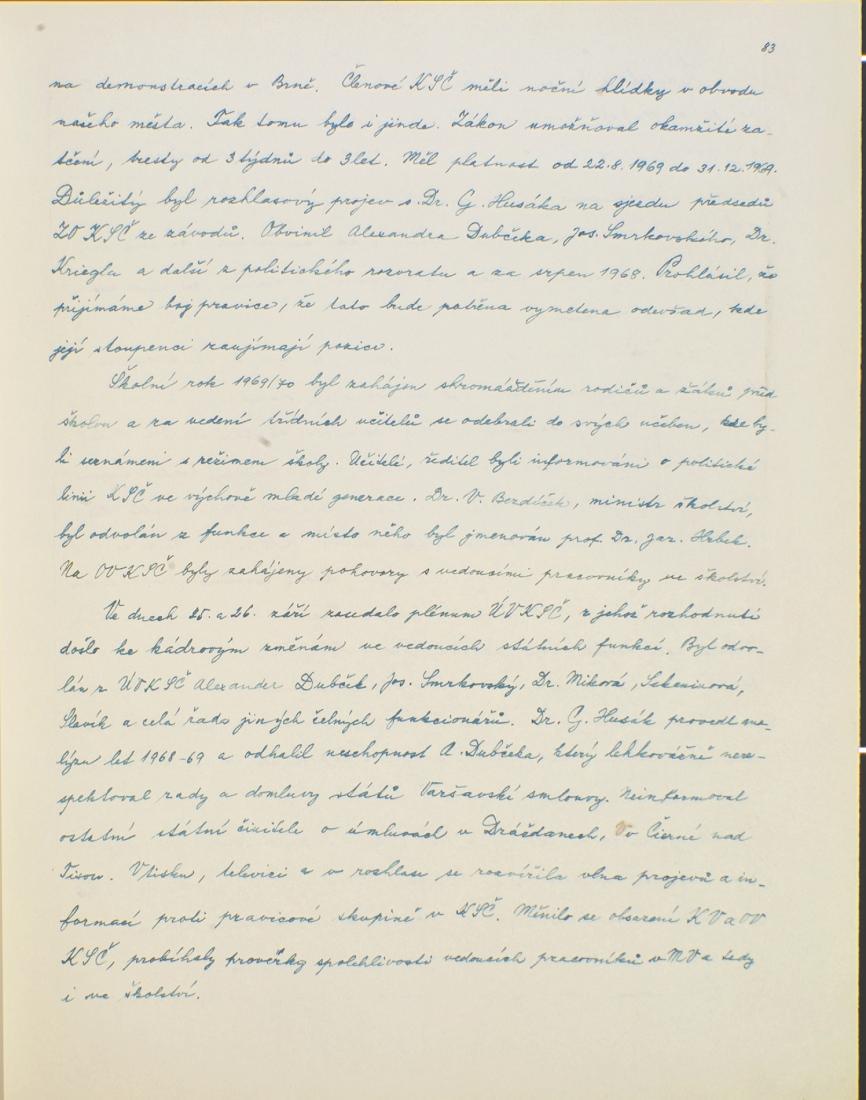 83
na demonstracích v Brně. Členové KSČ měli noční hlídky v obvodu
našeho města. Tak tomu bylo i jinde. Zákon umožňoval okamžité za-
tčení, tresty od 3 týdnů do 3 let. Měl platnost od 22.8.1969 do 31.12.1969.
Důležitý byl rozhlasový projev s. Dr. G. Husáka na sjezdu předsedů
ZO KSČ ze závodů. Obvinil Alexandra Dubčeka, Jos. Smrkovského, Dr.
Kriegla a další z politického rozvratu a za srpen 1968. Prohlásil, že
přijímáme boj pravice, že tato bude potřena vymetena odevšad, kde
její stoupenci zaujímají pozice.
Školní rok 1969/70 byl zahájen shromážděním rodičů a žáků před
školou a za vedení třídních učitelů se odebrali do svých učeben, kde by-
li seznámeni s režimem školy. Učitelé, ředitel byli informováni o politické
linii KSČ ve výchově mladé generace. Dr. V. Bezdíček, ministr školství,
byl odvolán z funkce a místo něho byl jmenován prof. Dr. Jar. Hrbek.
Na OV KSČ byly zahájeny pohovory s vedoucími pracovníky ve školství.
Ve dnech 25. a 26. září zasedalo plénum ÚV KSČ, z jehož rozhodnutí
došlo ke kádrovým změnám ve vedoucích státních funkcí. Byl odvo-
lán z ÚV KSČ Alexander Dubček, Jos. Smrkovský, Dr. Miková, Sekeninová,
Slavík a celá řada jiných čelných funkcionářů. Dr. G. Husák provedl ana-
lýzu let 1968-69 a odhalil neschopnost A. Dubčeka, který lehkovážně nere-
spektoval rady a domluvy států Varšavské smlouvy. Neinformoval
ostatní státní činitele o úmluvách v Drážďanech, v Čierné nad
Tisou. V tisku, televizi a v rozhlase se rozvířila vlna projevů a in-
formací proti pravicové skupině v KSČ. Měnilo se obsazení KV a OV
KSČ, probíhaly prověrky spolehlivosti vedoucích pracovníků v MV a tedy
i ve školství.